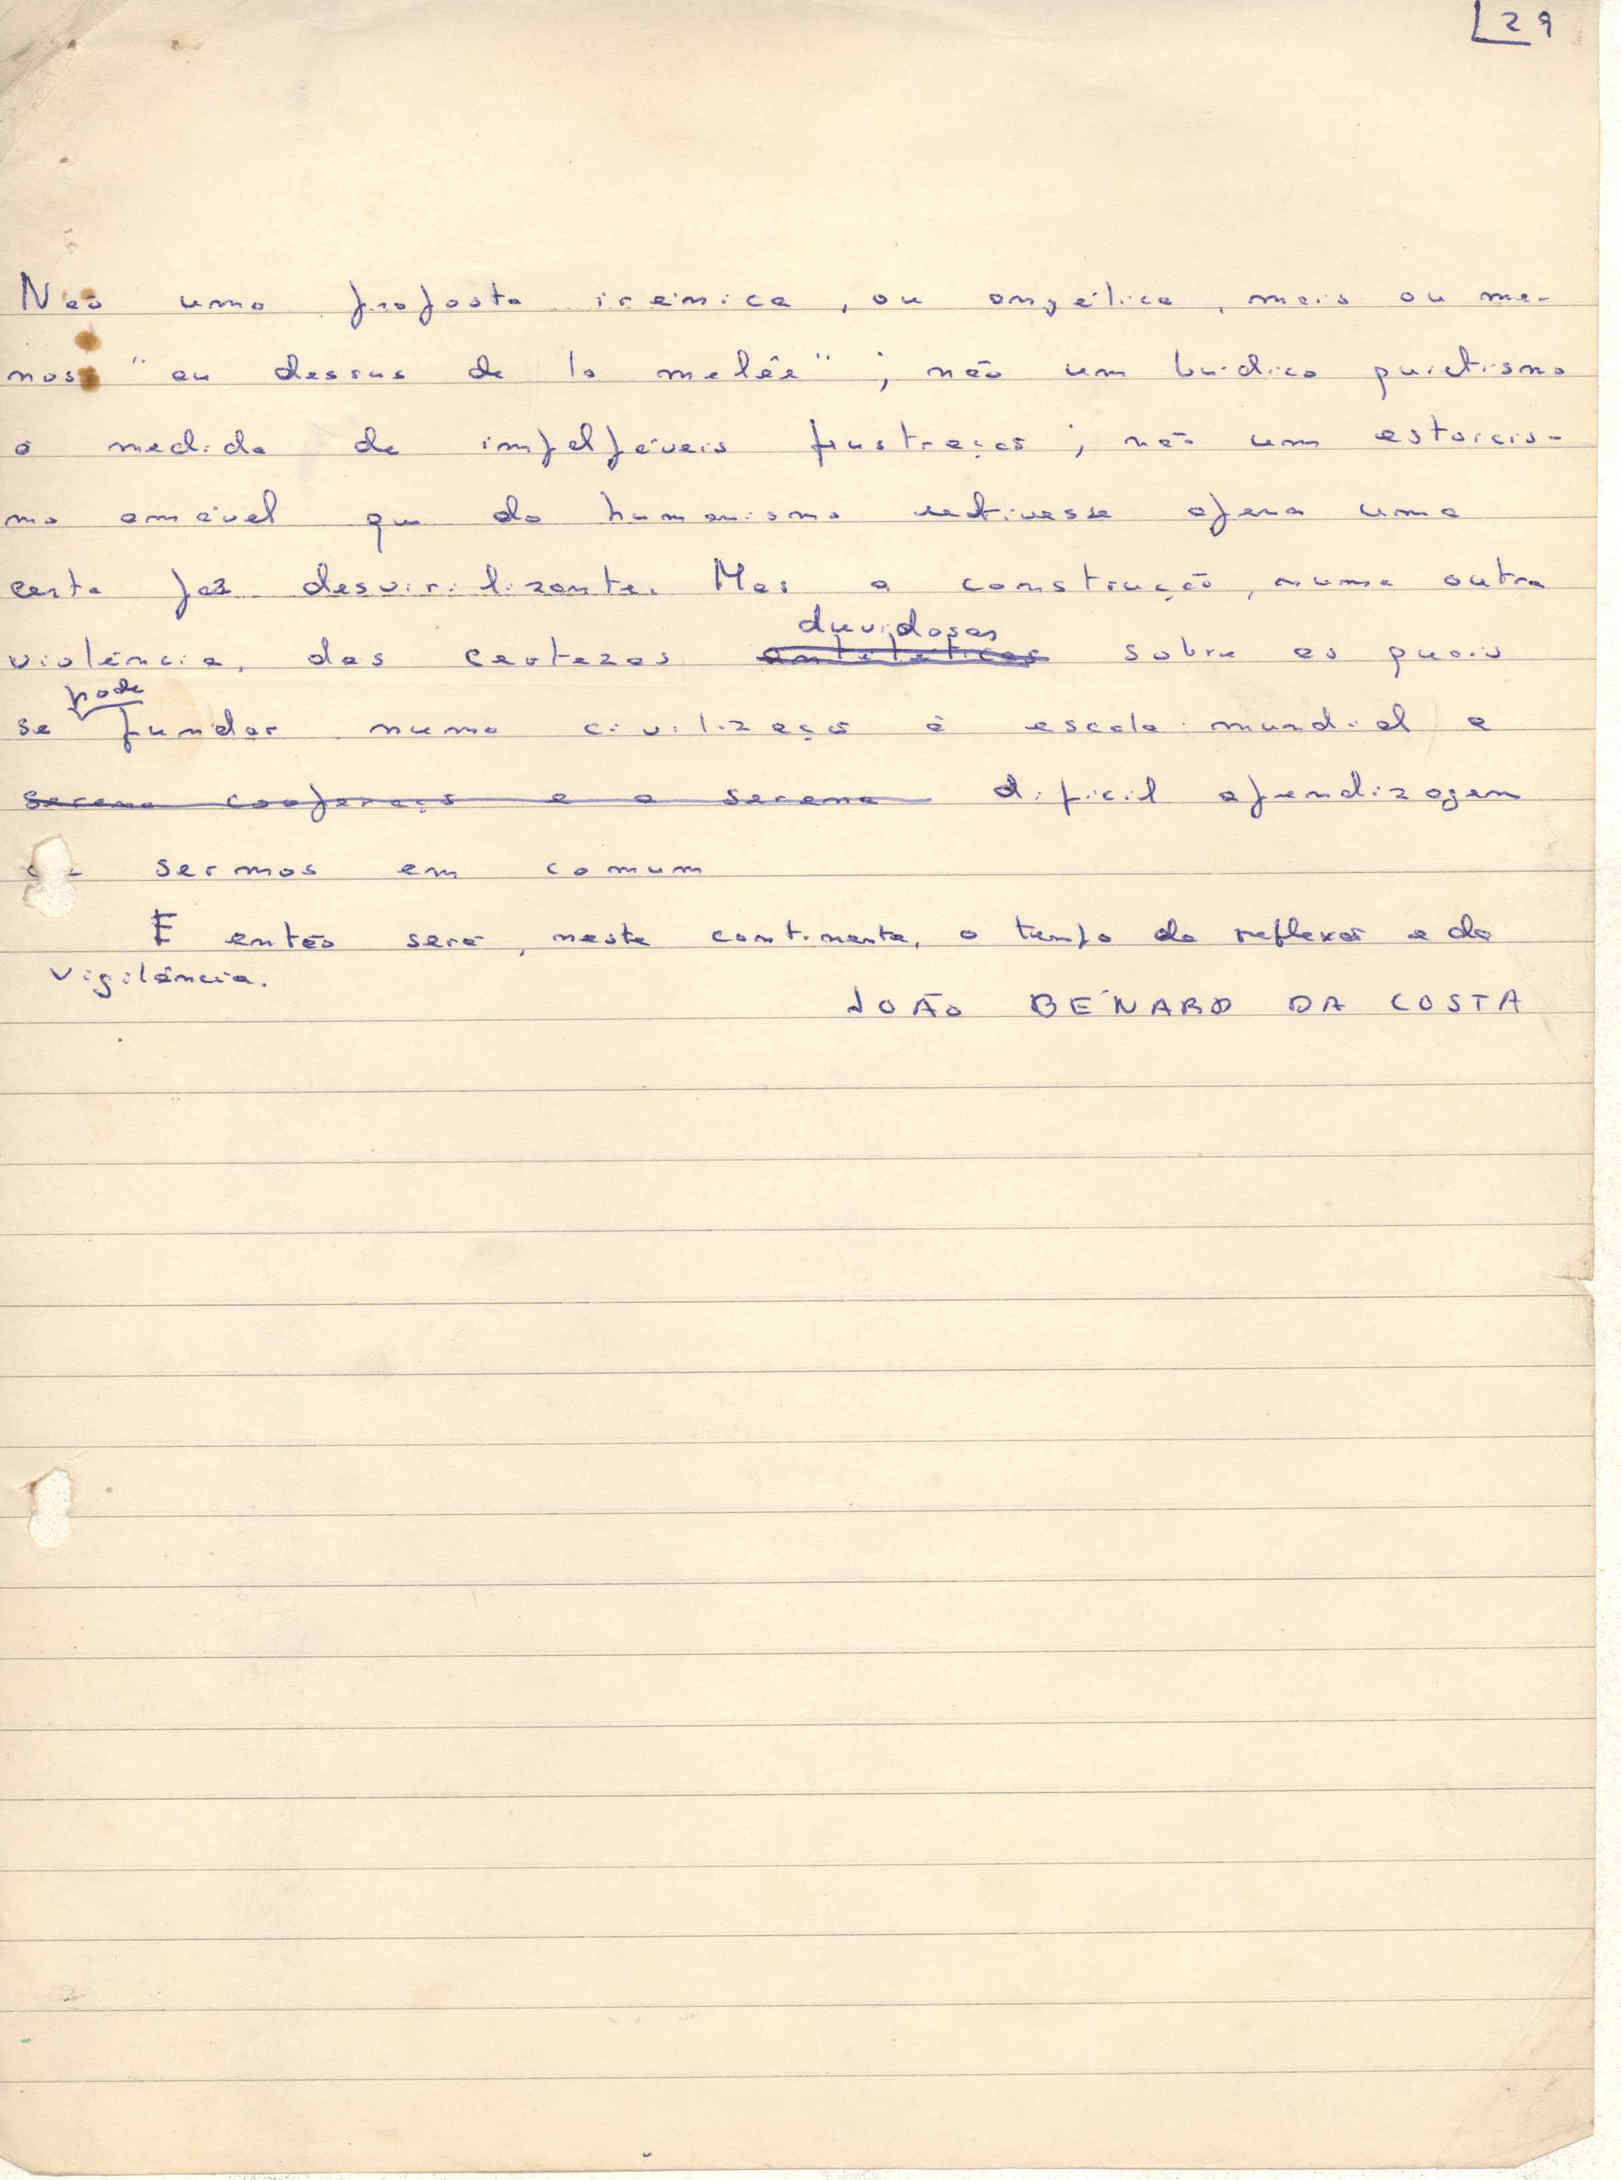 29
Não uma proposta irénica, ou angélica, mais ou me-
nos "au dessus de la melée"; não um búdico quietismo
à medida de impalpáveis frustrações; não um estoicis-
mo amável que do humanismo retivesse apenas uma
certa faz desvirilizante. Mas a construção, numa outra
duvidosas
violência, das certezas antitéticas sobre as quais
pode
se fundar numa civilização à escala mundial a
serena cooperação e a serena difícil aprendizagem
de sermos em comum
E então será, neste continente, o tempo da reflexão e da
vigilância.
JOÃO BÉNARD DA COSTA